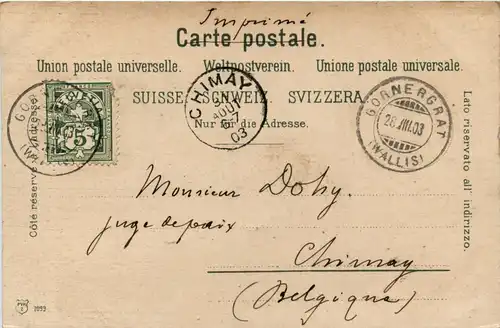 Imprimé
Carte postale.
Union postale universelle. Weltpostverein. Unione postale universale.
SUISSE. SCHWEIZ. SVIZZERA.
Nur für die Adresse.
Côté réservé à l'adresse.
Lato riservato all' indirizzo.
5
CHIMAY
AOUT
03
GORNERGRAT
28.VIII.03
(WALLIS)
Monsieur Dohy.
juge de paix
Chimay
(Belgique)